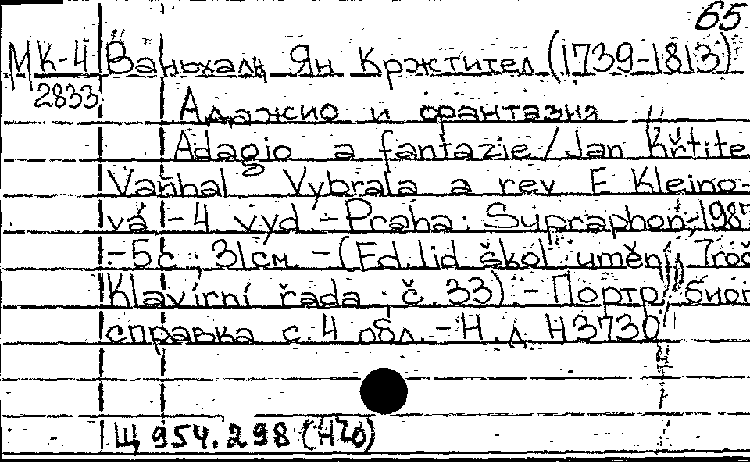 65
МК-4 Ваньхаль, Ян Кржтител (1739-1813)
2833
Адажио и фантазия
Adagio a fantazie / Jan Křtite
Vaňhal Vybrala a rev E Kleino-
vá - 4 vyd - Praha: Supraphon, 198
- 5 с ; 31 см - (Ed. lid škol umění,
Klavírní řada ; č 33) - Портр, биог
справка с. 4 обл. - Н. д Н3730
Щ 954.298 (Н20)